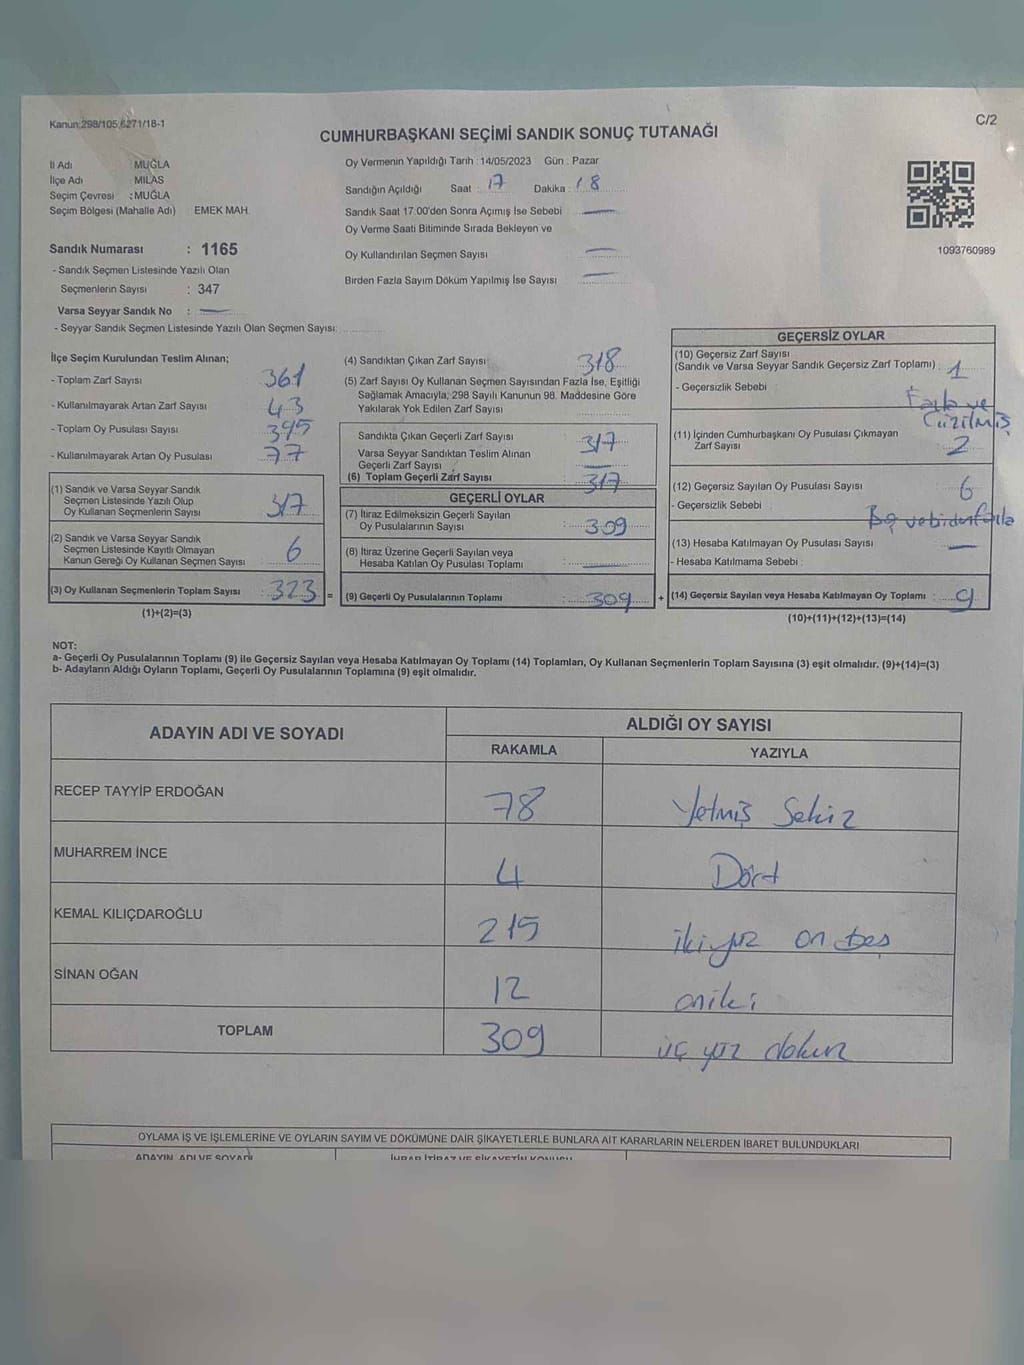 Kanun:298/105,6271/18-1
C/2
CUMHURBAŞKANI SEÇİMİ SANDIK SONUÇ TUTANAĞI
İl Adı : MUĞLA
İlçe Adı : MİLAS
Seçim Çevresi : MUĞLA
Seçim Bölgesi (Mahalle Adı) EMEK MAH.
Oy Vermenin Yapıldığı Tarih : 14/05/2023 Gün : Pazar
Sandığın Açıldığı Saat : 17 Dakika : 18
Sandık Saat 17:00'den Sonra Açımış İse Sebebi —
Oy Verme Saati Bitiminde Sırada Bekleyen ve
Oy Kullandırılan Seçmen Sayısı —
Birden Fazla Sayım Döküm Yapılmış İse Sayısı —
1093760989
Sandık Numarası : 1165
- Sandık Seçmen Listesinde Yazılı Olan
Seçmenlerin Sayısı : 347
Varsa Seyyar Sandık No : —
- Seyyar Sandık Seçmen Listesinde Yazılı Olan Seçmen Sayısı:
İlçe Seçim Kurulundan Teslim Alınan;
- Toplam Zarf Sayısı 361
- Kullanılmayarak Artan Zarf Sayısı 43
- Toplam Oy Pusulası Sayısı 395
- Kullanılmayarak Artan Oy Pusulası 77
(1) Sandık ve Varsa Seyyar Sandık
Seçmen Listesinde Yazılı Olup
Oy Kullanan Seçmenlerin Sayısı 317
(2) Sandık ve Varsa Seyyar Sandık
Seçmen Listesinde Kayıtlı Olmayan
Kanun Gereği Oy Kullanan Seçmen Sayısı 6
(3) Oy Kullanan Seçmenlerin Toplam Sayısı : 323 =
(1)+(2)=(3)
(4) Sandıktan Çıkan Zarf Sayısı 318
(5) Zarf Sayısı Oy Kullanan Seçmen Sayısından Fazla İse, Eşitliği
Sağlamak Amacıyla; 298 Sayılı Kanunun 98. Maddesine Göre
Yakılarak Yok Edilen Zarf Sayısı
Sandıkta Çıkan Geçerli Zarf Sayısı 317
Varsa Seyyar Sandıktan Teslim Alınan
Geçerli Zarf Sayısı —
(6) Toplam Geçerli Zarf Sayısı 317
GEÇERLİ OYLAR
(7) İtiraz Edilmeksizin Geçerli Sayılan
Oy Pusulalarının Sayısı : 309
(8) İtiraz Üzerine Geçerli Sayılan veya
Hesaba Katılan Oy Pusulası Toplamı : —
(9) Geçerli Oy Pusulalarının Toplamı : 309 +
GEÇERSİZ OYLAR
(10) Geçersiz Zarf Sayısı
(Sandık ve Varsa Seyyar Sandık Geçersiz Zarf Toplamı) : 1
- Geçersizlik Sebebi : Fazla ve
Çizilmiş
(11) İçinden Cumhurbaşkanı Oy Pusulası Çıkmayan
Zarf Sayısı 2
(12) Geçersiz Sayılan Oy Pusulası Sayısı 6
- Geçersizlik Sebebi : Boş ve birden fazla
(13) Hesaba Katılmayan Oy Pusulası Sayısı —
- Hesaba Katılmama Sebebi :
(14) Geçersiz Sayılan veya Hesaba Katılmayan Oy Toplamı : 9
(10)+(11)+(12)+(13)=(14)
NOT:
a- Geçerli Oy Pusulalarının Toplamı (9) ile Geçersiz Sayılan veya Hesaba Katılmayan Oy Toplamı (14) Toplamları, Oy Kullanan Seçmenlerin Toplam Sayısına (3) eşit olmalıdır. (9)+(14)=(3)
b- Adayların Aldığı Oyların Toplamı, Geçerli Oy Pusulalarının Toplamına (9) eşit olmalıdır.
ADAYIN ADI VE SOYADI
ALDIĞI OY SAYISI
RAKAMLA YAZIYLA
RECEP TAYYİP ERDOĞAN 78 Yetmiş Sekiz
MUHARREM İNCE 4 Dört
KEMAL KILIÇDAROĞLU 215 ikiyüz on beş
SİNAN OĞAN 12 oniki
TOPLAM 309 üç yüz dokuz
OYLAMA İŞ VE İŞLEMLERİNE VE OYLARIN SAYIM VE DÖKÜMÜNE DAİR ŞİKAYETLERLE BUNLARA AİT KARARLARIN NELERDEN İBARET BULUNDUKLARI
ADAYIN ADI VE SOYADI İHBAR İTİRAZ VE ŞİKAYETİN KONUSU